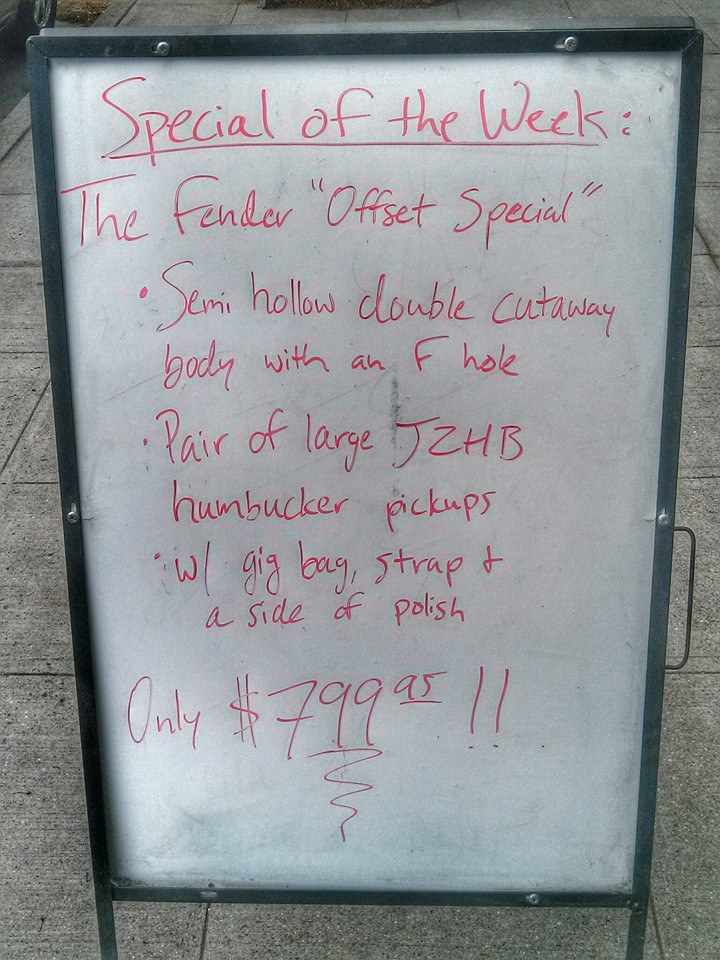 Special of the Week:
The Fender "Offset Special"
• Semi hollow double cutaway
body with an F hole
• Pair of large JZHB
humbucker pickups
• w/ gig bag, strap &
a side of polish
Only $799.95 !!